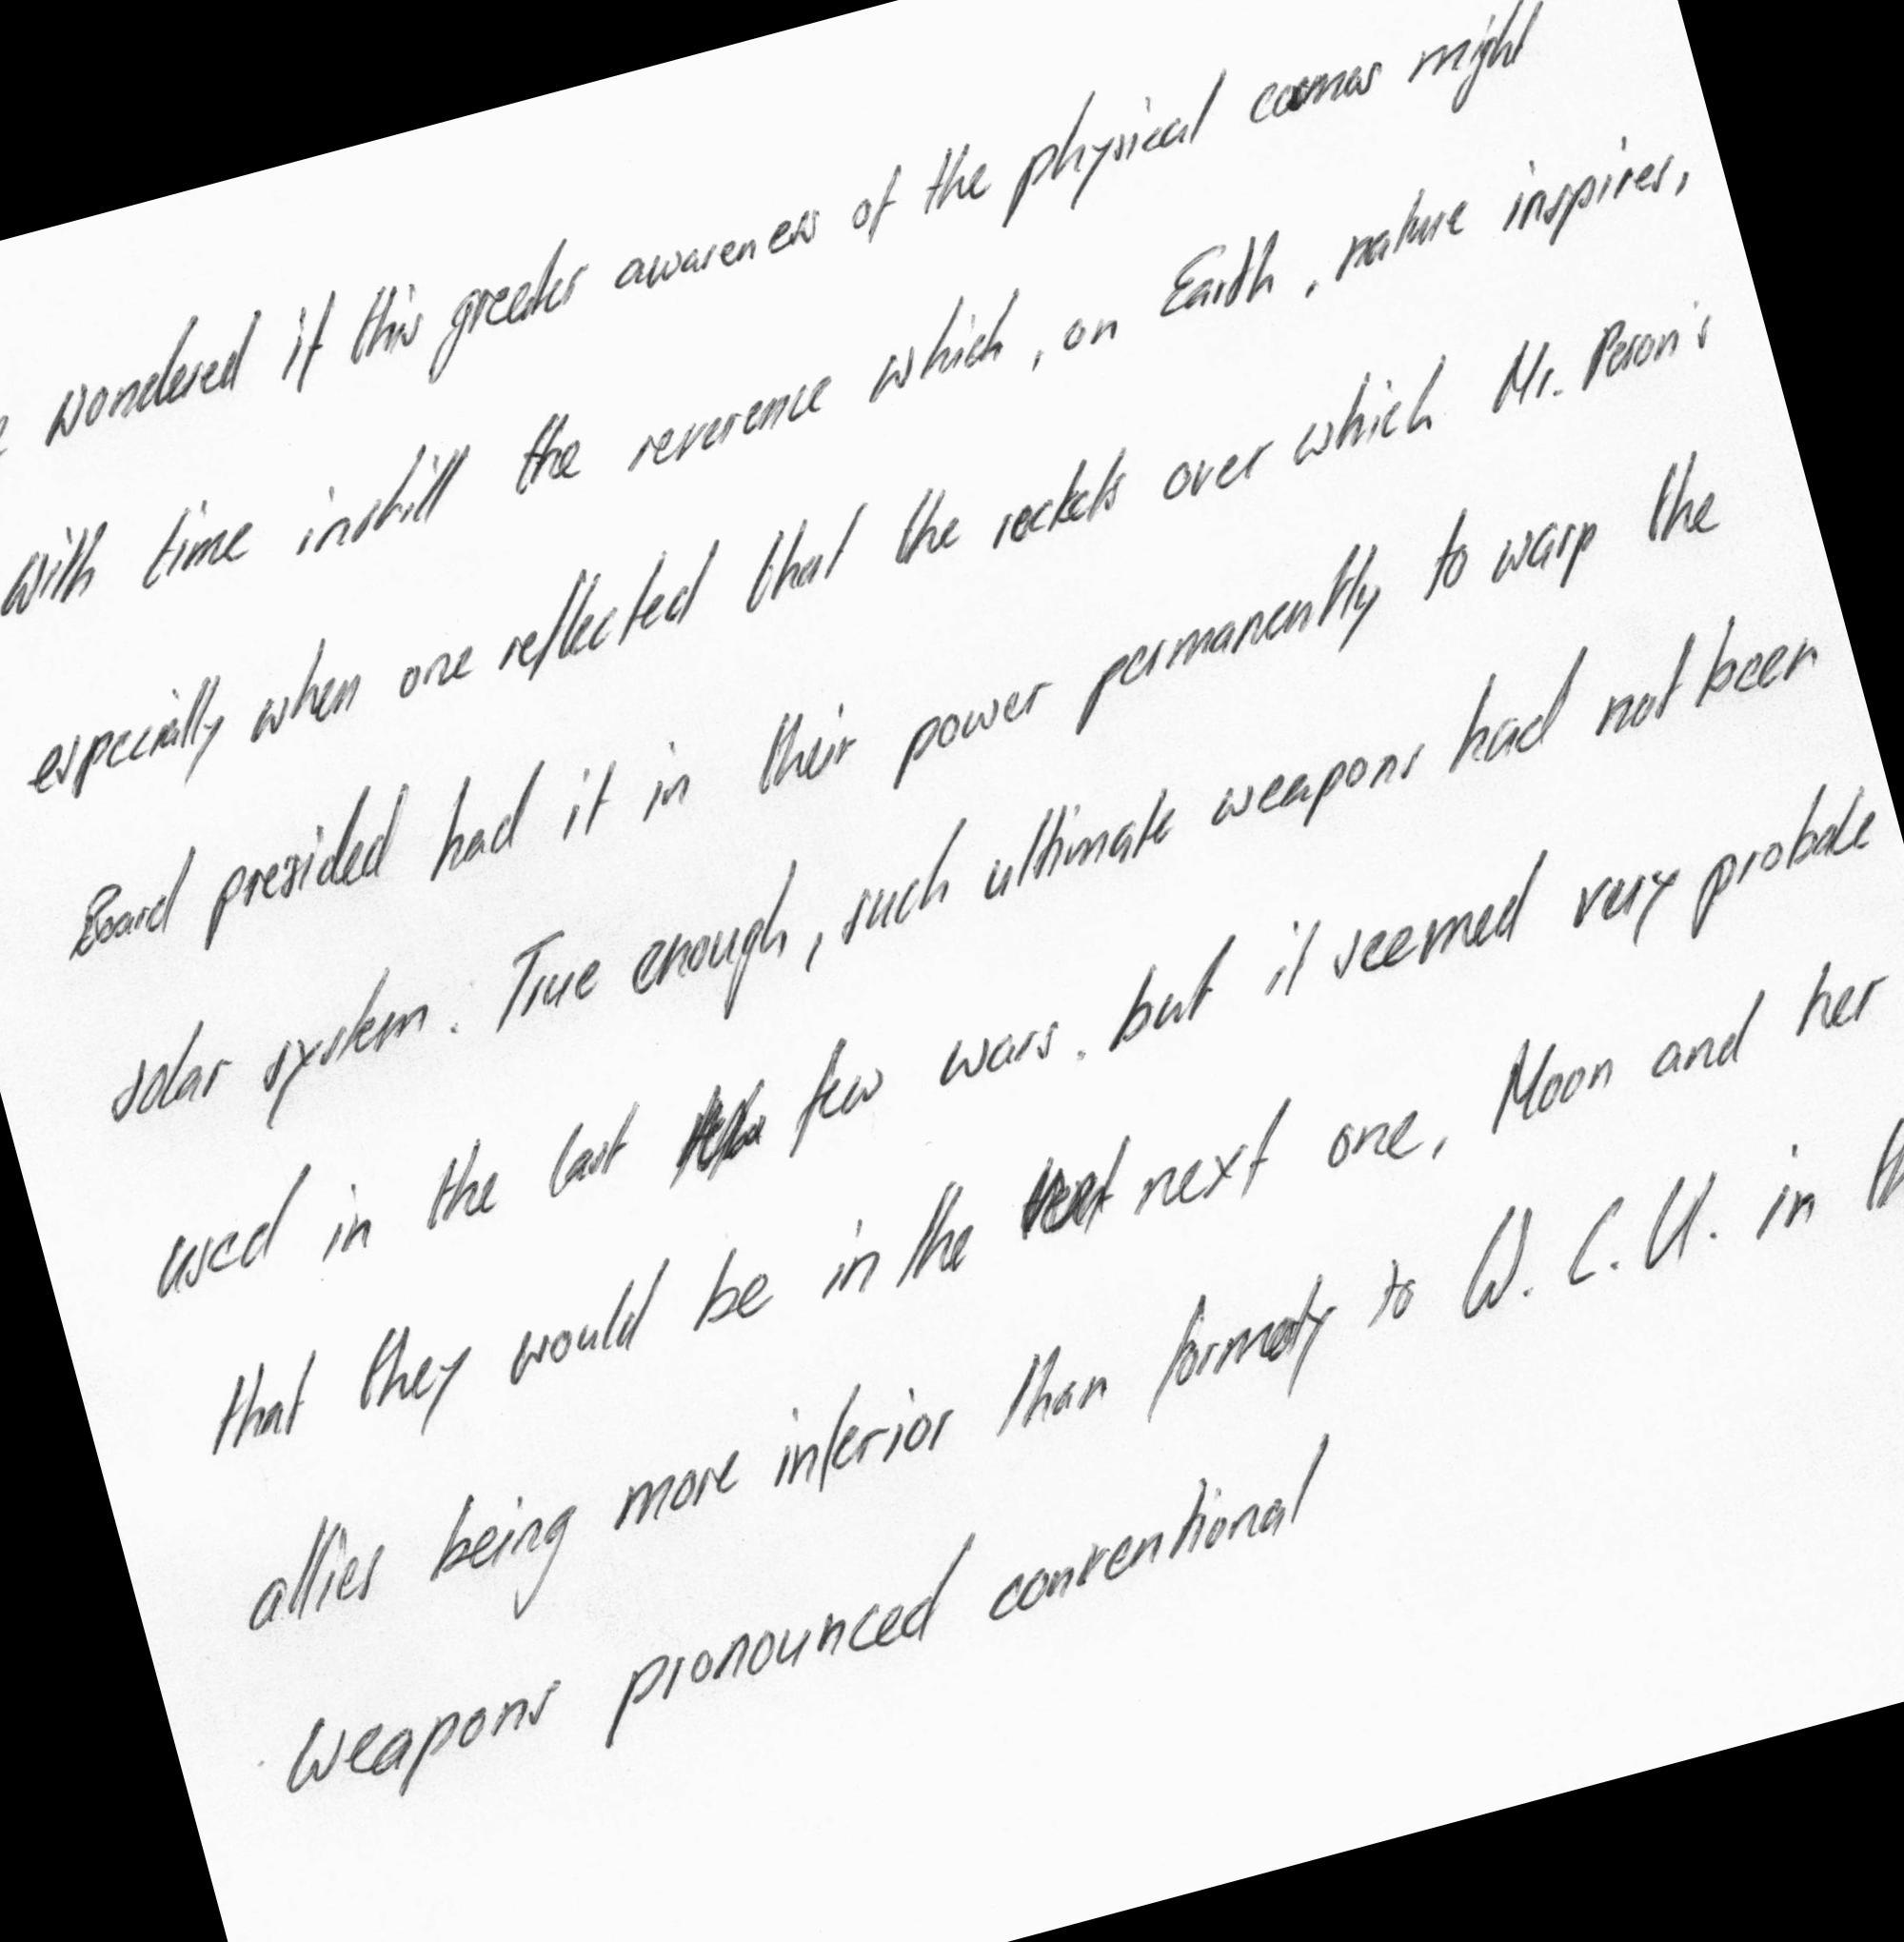 wondered if this greater awareness of the physical cosmos might
with time instill the reverence which, on Earth, nature inspires,
especially when one reflected that the rockets over which Mr. Peron's
Board presided had it in their power permanently to warp the
solar system. True enough, such ultimate weapons had not been
used in the last few wars. but it seemed very probable
that they would be in the next one, Moon and her
allies being more inferior than formerly to W. C. U. in
weapons pronounced conventional